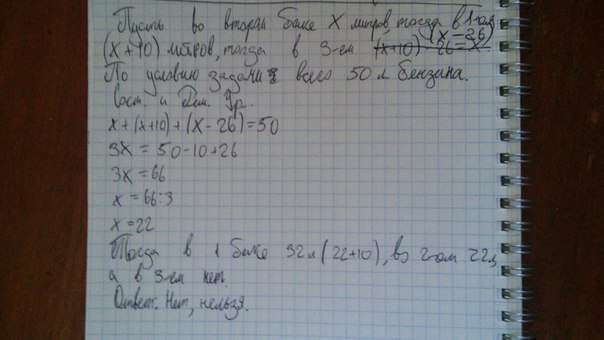 Пусть во втором баке X литров, тогда в 1-ом
(x+10) литров, тогда в 3-ем (x-26)
По условию задачи всего 50 л бензина.
Сост. и Реш. Ур.
x+(x+10)+(x-26)=50
3x = 50-10+26
3x=66
x = 66:3
x=22
Тогда в 1 баке 32л (22+10), во 2-ом 22л,
а в 3-ем нет.
Ответ. Нет, нельзя.